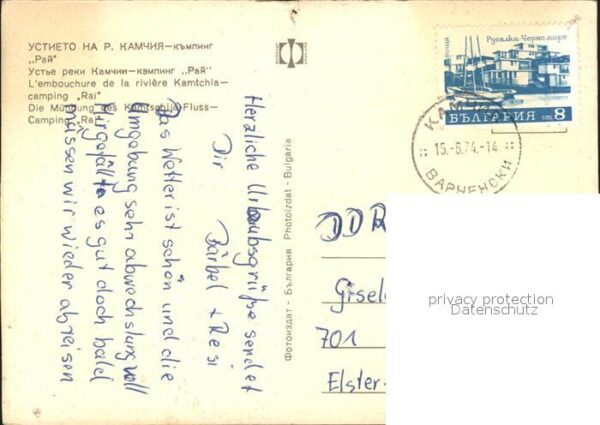 УСТИЕТО НА Р. КАМЧИЯ—къмпинг
„Рай"
Устье реки Камчии—кэмпинг „Рай"
L'embouchure de la rivière Kamtchia—
camping „Rai"
Die Mündung des Kamtschija-Fluss—
Camping „Rai"
Herzliche Urlaubsgrüße sendet
Dir Bärbel + Resi
Das Wetter ist schön und die
Umgebung sehr abwechslungsvoll
Mir gefällt es gut doch bald
müssen wir wieder abreisen
Фотоиздат - България Photoizdat - Bulgaria
поща
Русалка Черноморе
БЪЛГАРИЯ ст. 8
КАМЧИЯ
15.-6.74.-14
ВАРНЕНСКИ
DDR
Gisel
701
Elster
privacy protection
Datenschutz